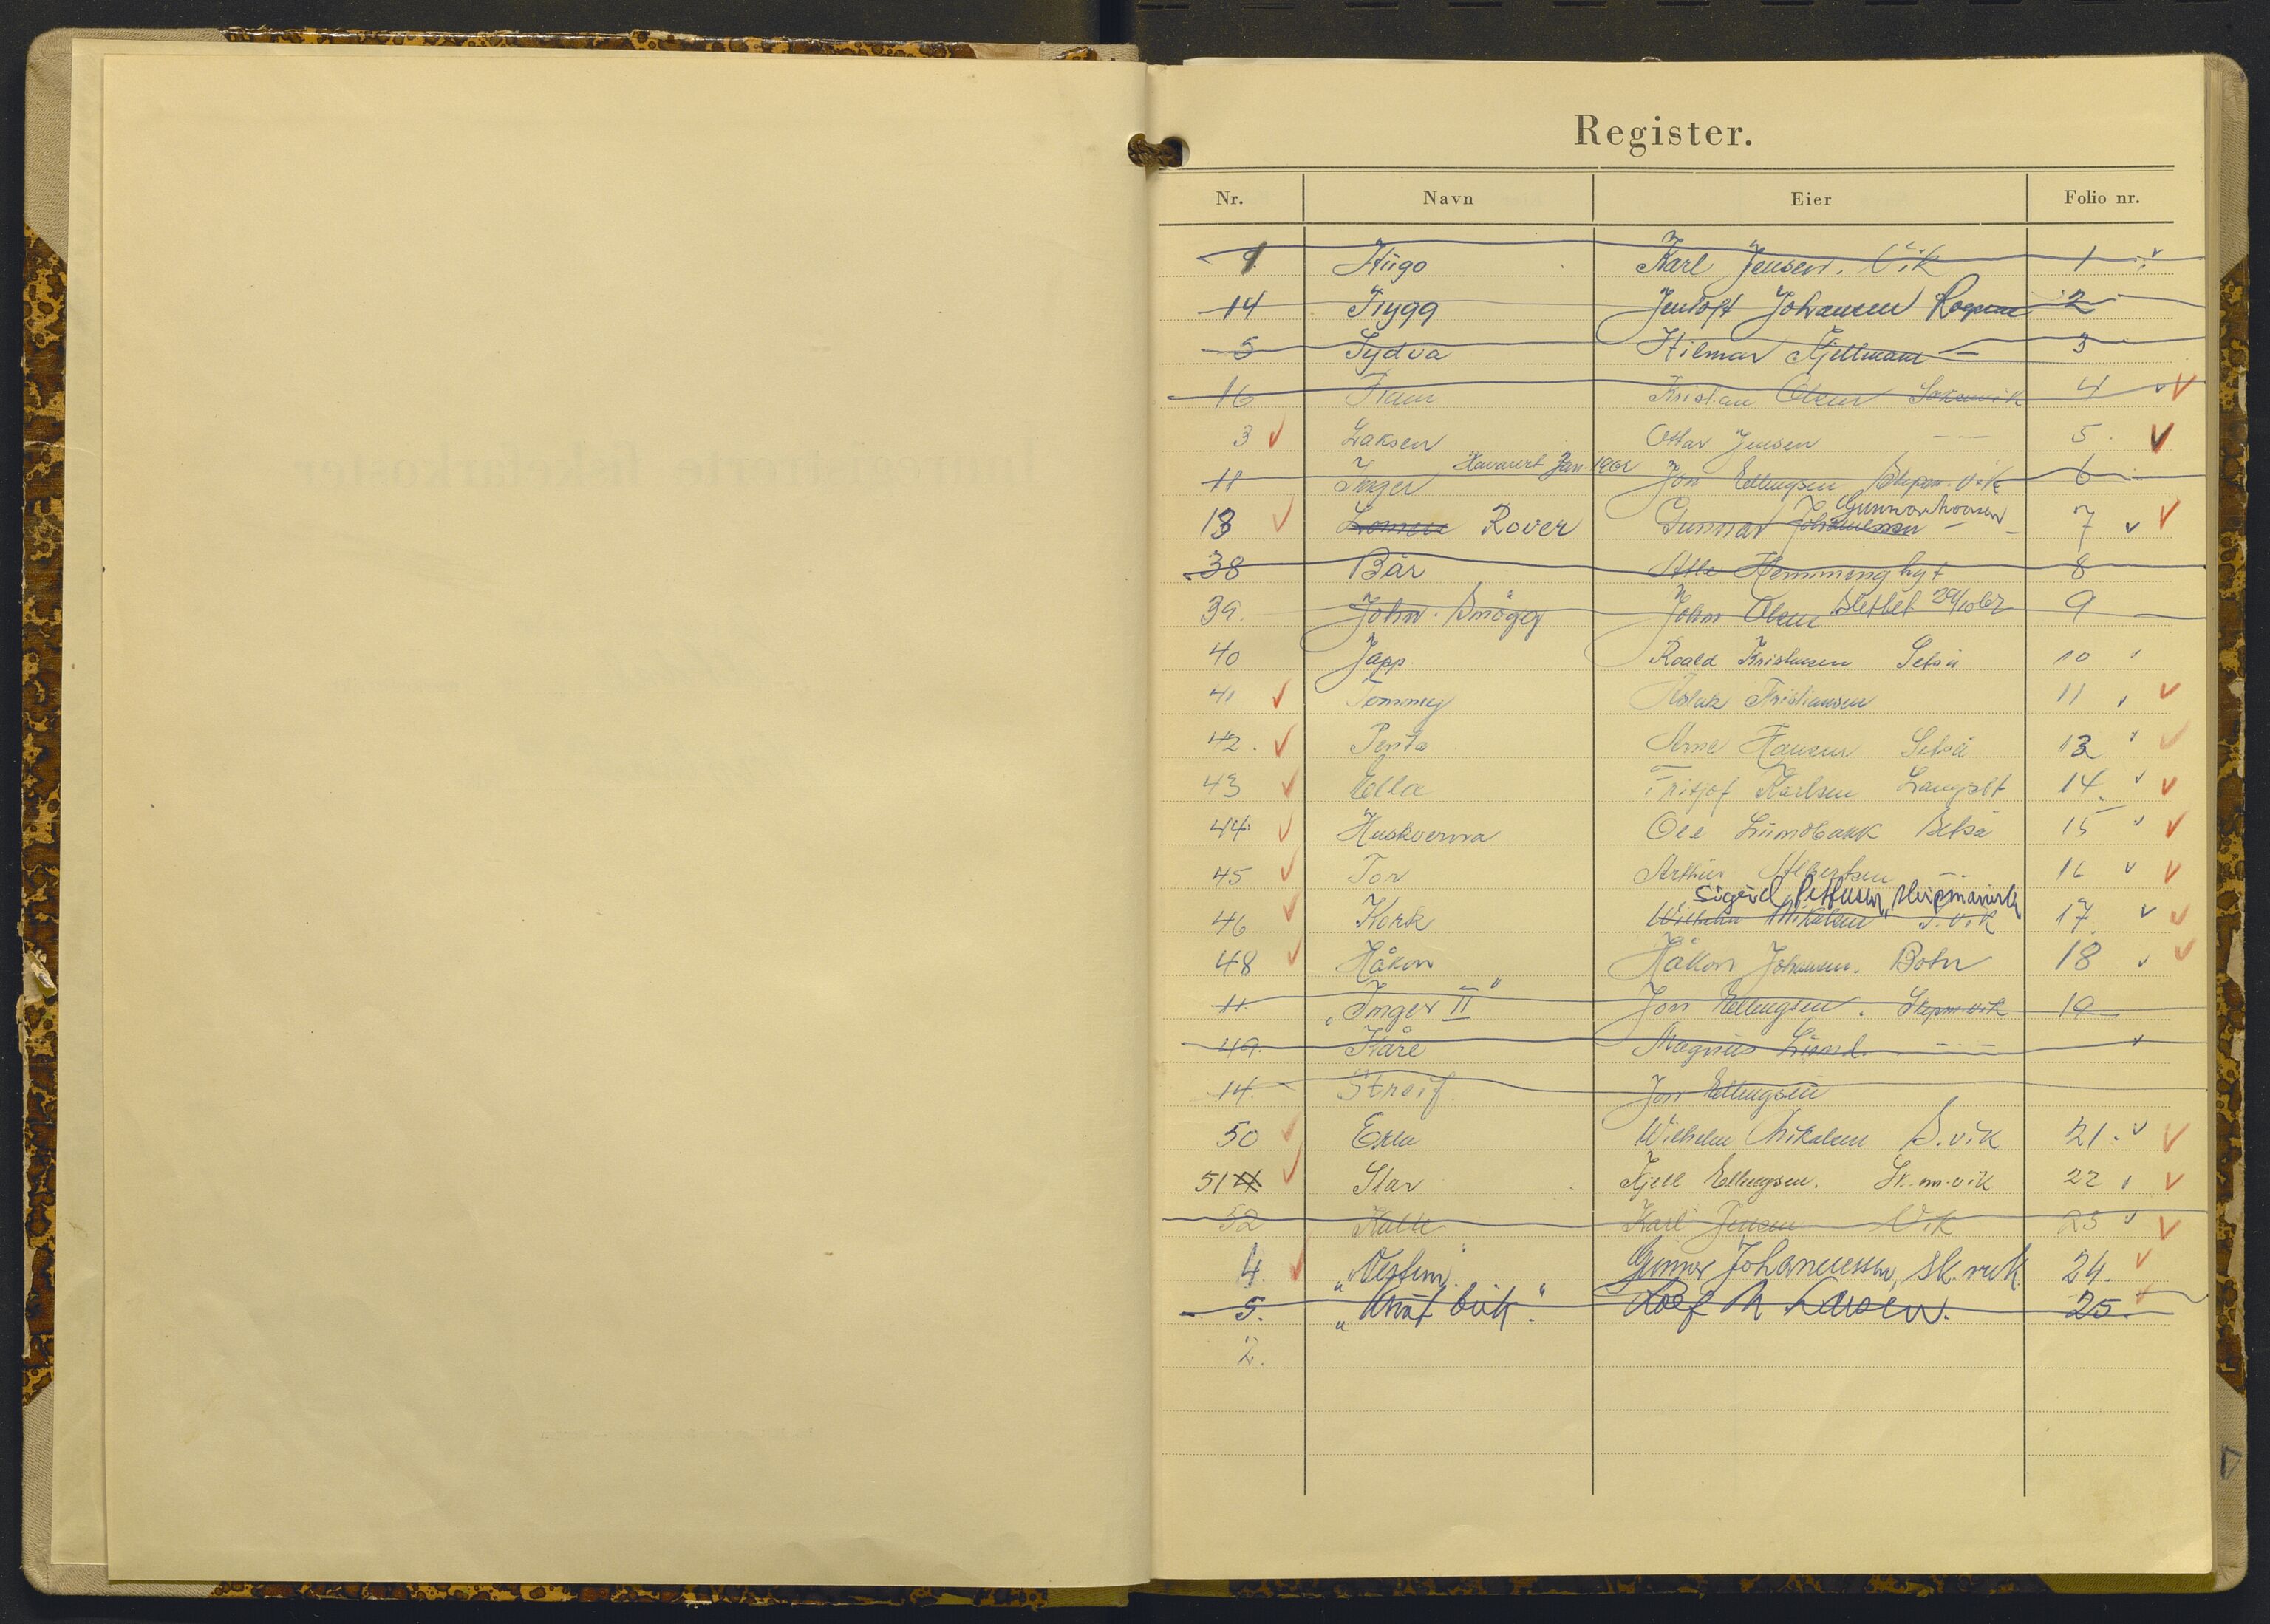 Register.
Nr. Navn Eier Folio nr.
1 Hugo Karl Jensen. Vik 1
14 Trygg Jentoft Johansen Rognan 2
5 Sydva Hilmar Kjellmann — 3
16 Fram Kristian Olsen Saksenvik 4
3 Laksen Ottar Jensen — — 5
Havarert Jan. 1961
11 Inger Jon Ellingsen Skjem. vik 6
Gunnar
13 Rover Gunnar Johannessen 7
38 Bår Hemminghyt 8
Slettet 29/10 62
39. John. Smögg John Olsen 9
40 Japp Roald Kristensen Setså 10
41 Tommy Aslak Kristiansen 11
42. Penta Arne Hansen Setså 13
43 Ella Fritjof Karlsen 14.
44 Huskverna Ole Lundbakk Setså 15
45 Tor Arthur Albertsen — 16
Sigurd Pettersen
46 Kork Wilhelm Mikalsen S. vik 17.
48 Håkon Håkon Johansen. Botn 18
11. "Inger II" Jon Ellingsen. 19
49. Kåre Magnus Lund. — —
14. Streif Jon Ellingsen
50 Erla Wilhelm Mikalsen S. vik 21.
51 Star Kjell Ellingsen. Sk.m.vik 22
52 Kalle Karl Jensen Vik 23
4. "Vesturi" Gunnar Johannessen, Sk. vik. 24.
5. Leif M Larsen. 25.
2.